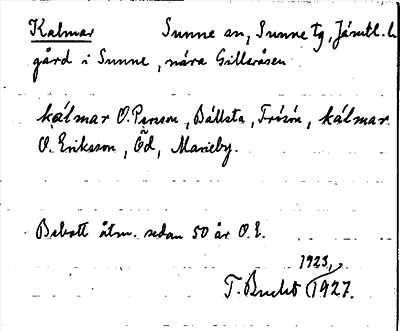 Kalmar Sunne sn, Sunne tg, Jämtl. l.
gård i Sunne, nära Gilleråsen
kálmar O. Persson, Bällsta, Frösön, kálmar
O. Eriksson, Öd, Marieby.
Bebott åtm. sedan 50 år O. E.
1923,
T. Bucht 1927.